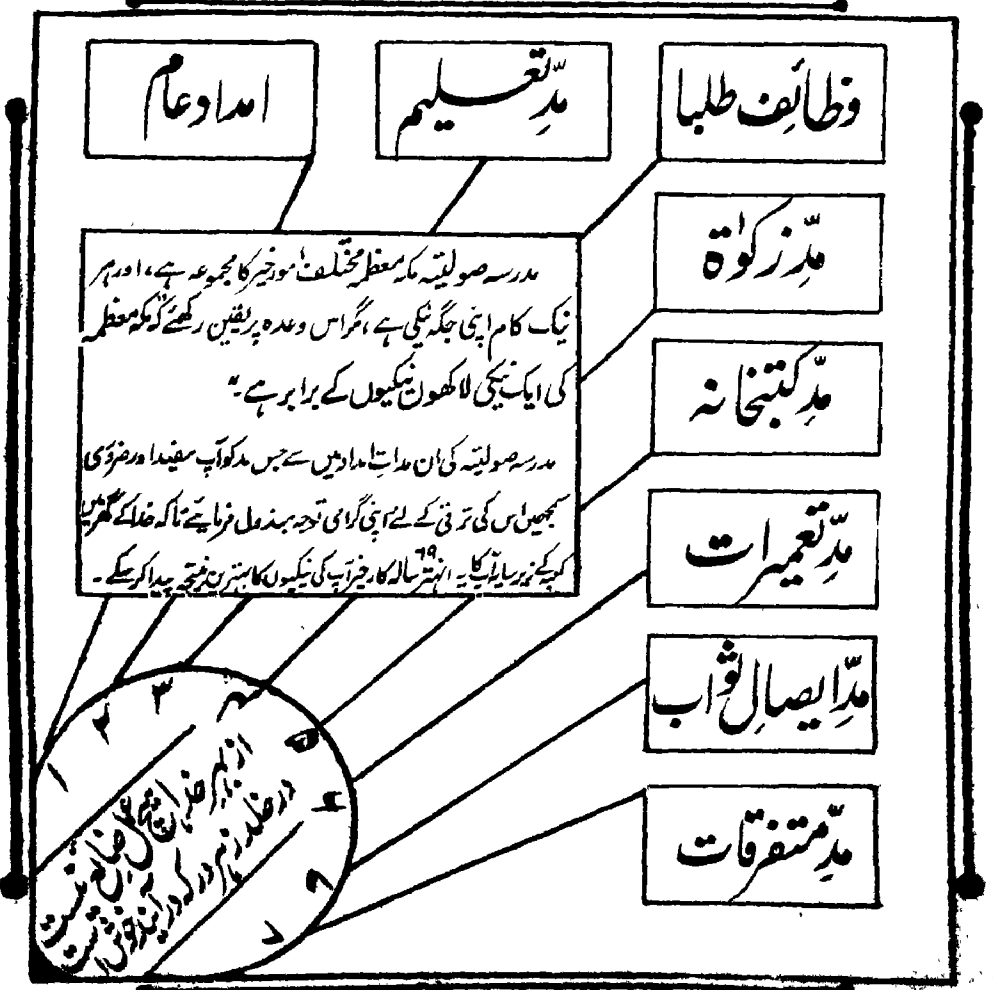 وظائف طلبا
مدِّ تعلیم
امداد عام
مدِّ زکوٰۃ
مدِّ کتبخانہ
مدِّ تعمیرات
مدِّ ایصالِ ثواب
مدِّ متفرقات
مدرسہ صولتیہ مکہ معظمہ مختلف امور خیر کا مجموعہ ہے، اور ہر
نیک کام اپنی جگہ نیکی ہے، مگر اس وعدہ پر یقین رکھئے کہ "مکہ معظمہ
کی ایک نیکی لاکھوں نیکیوں کے برابر ہے۔"
مدرسہ صولتیہ کی ان مداتِ امداد میں سے جس مد کو آپ مفید اور ضروری
سمجھیں اس کی ترقی کے لئے اپنی گرامی توجہ مبذول فرمایئے تاکہ خدا کے گھر میں
کعبہ کے زیر سایہ آپ کا یہ انہتر ۶۹ سالہ کار خیر آپ کی نیکیوں کا بہترین نتیجہ پیدا کر سکے۔
۱
۲
۳
۴
۵
۶
۷
از بہر خدا ہیچ عمل ضایع نیست
در خلد ز ہر در کہ در آیند خوش است